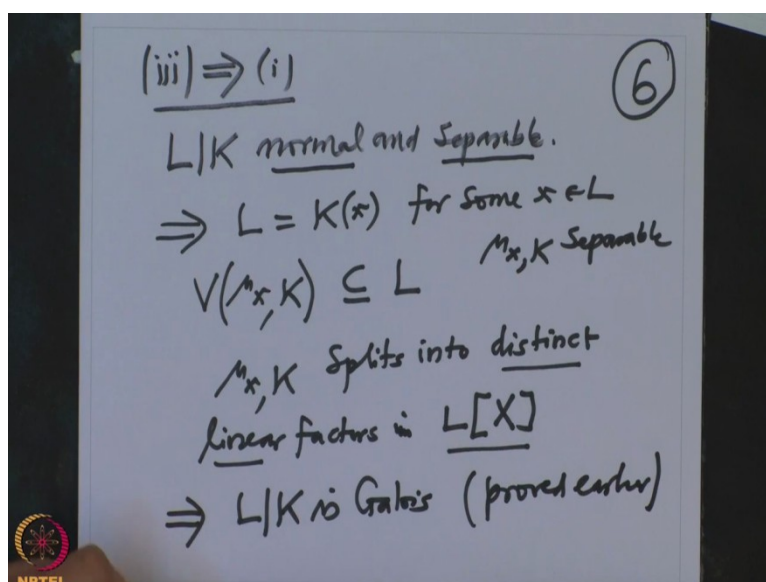 (iii) ⇒ (i)
6
L|K normal and Separable.
⇒ L = K(x) for some x ∈ L
μx,K Separable
V(μx,K) ⊆ L
μx,K Splits into distinct
linear factors in L[X]
⇒ L|K is Galois (proved earlier)
NPTEL